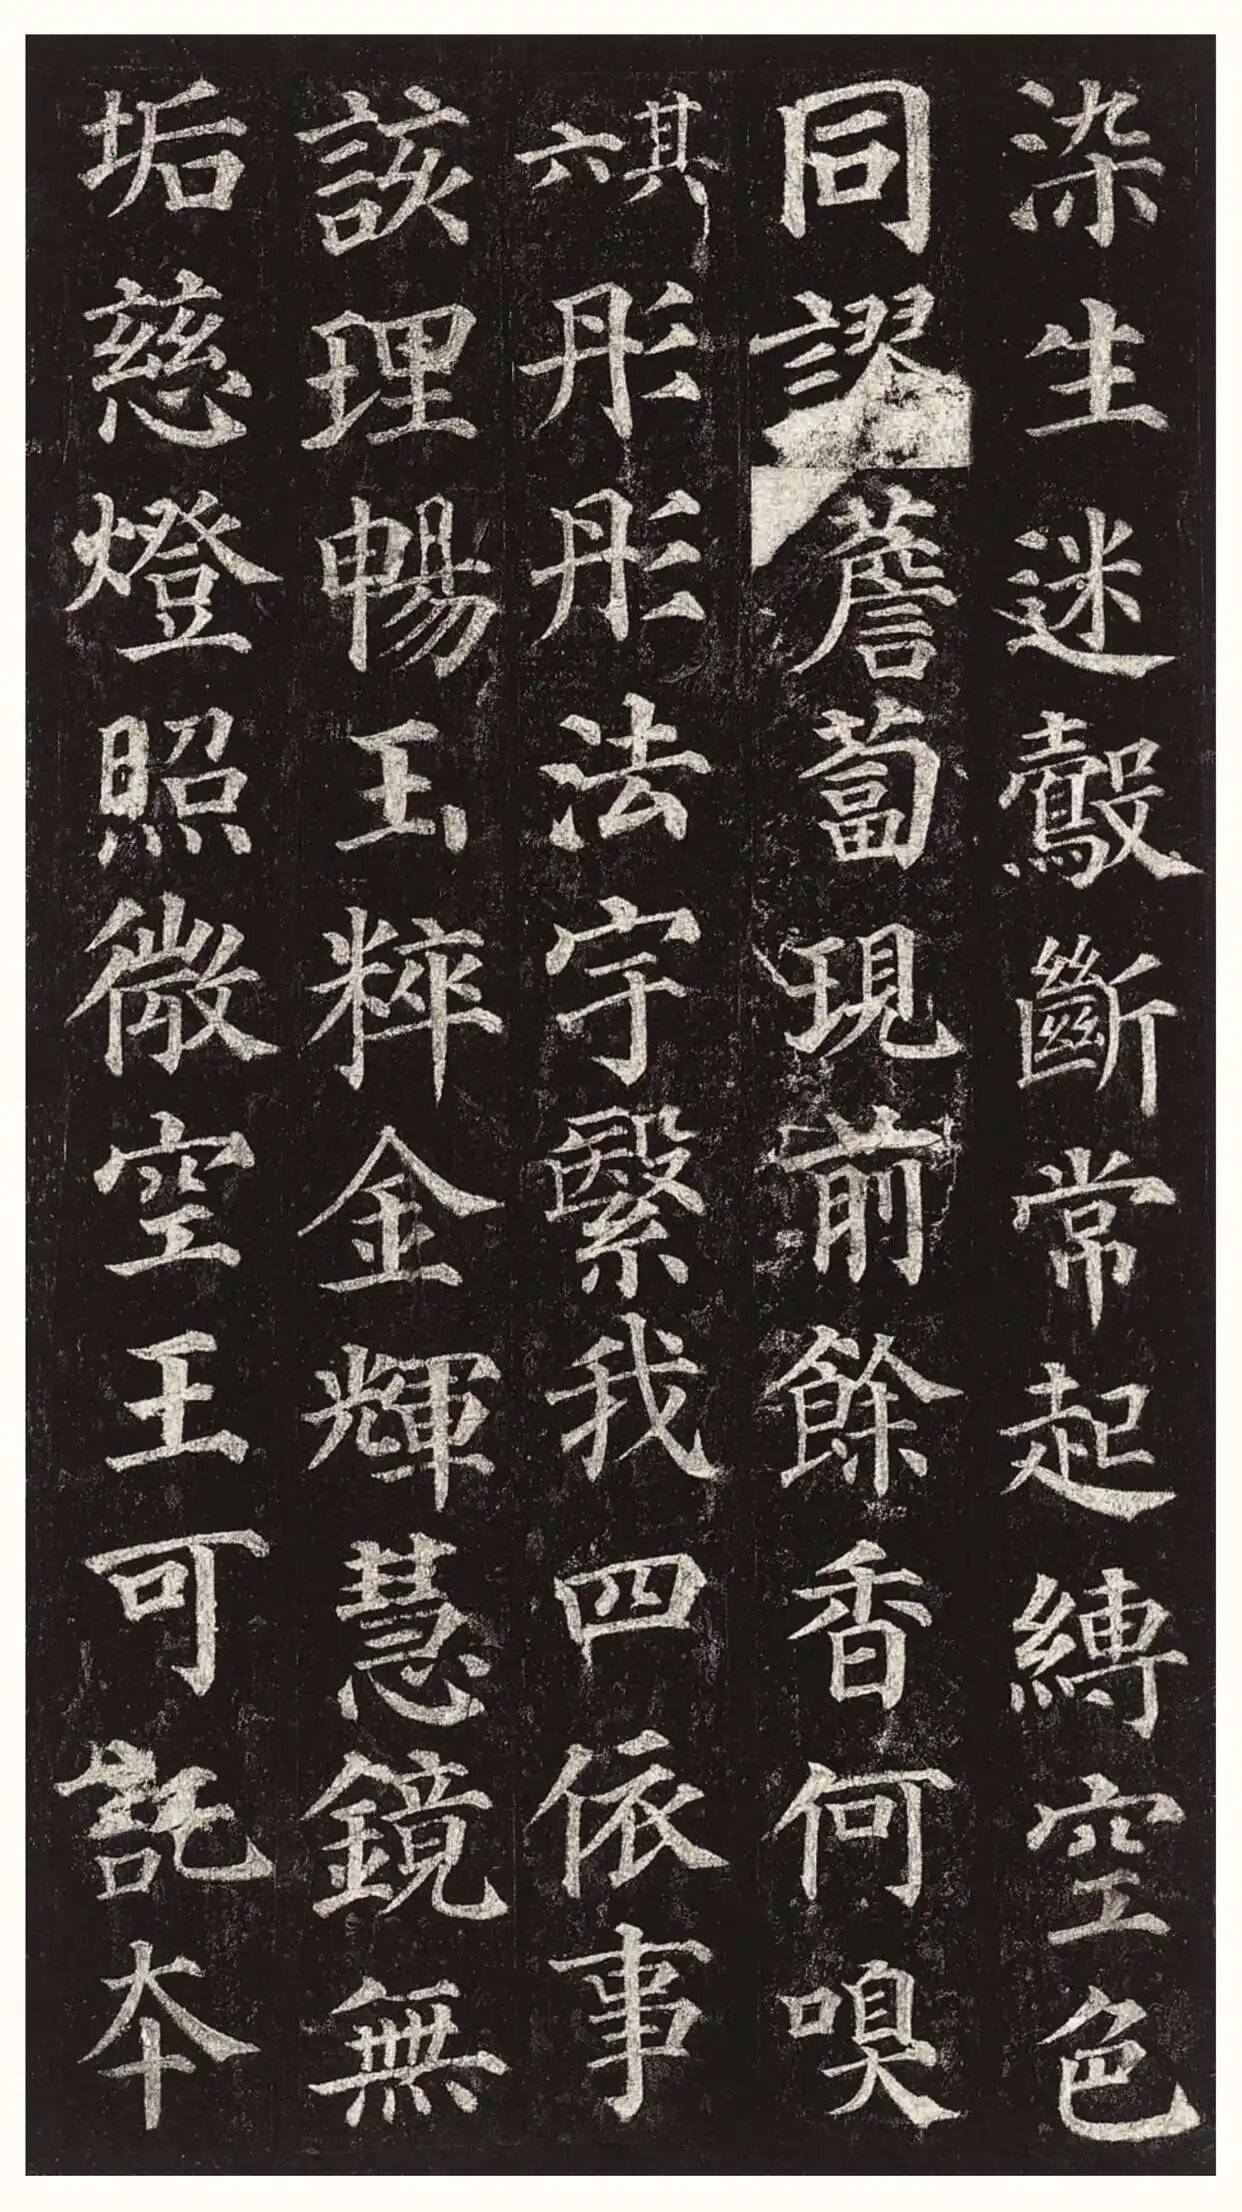 染生迷鷇斷常起縛空色
同謬薝蔔現前餘香何嗅
其六彤彤法宇繄我四依事
該理暢玉粹金輝慧鏡無
垢慈燈照微空王可託本